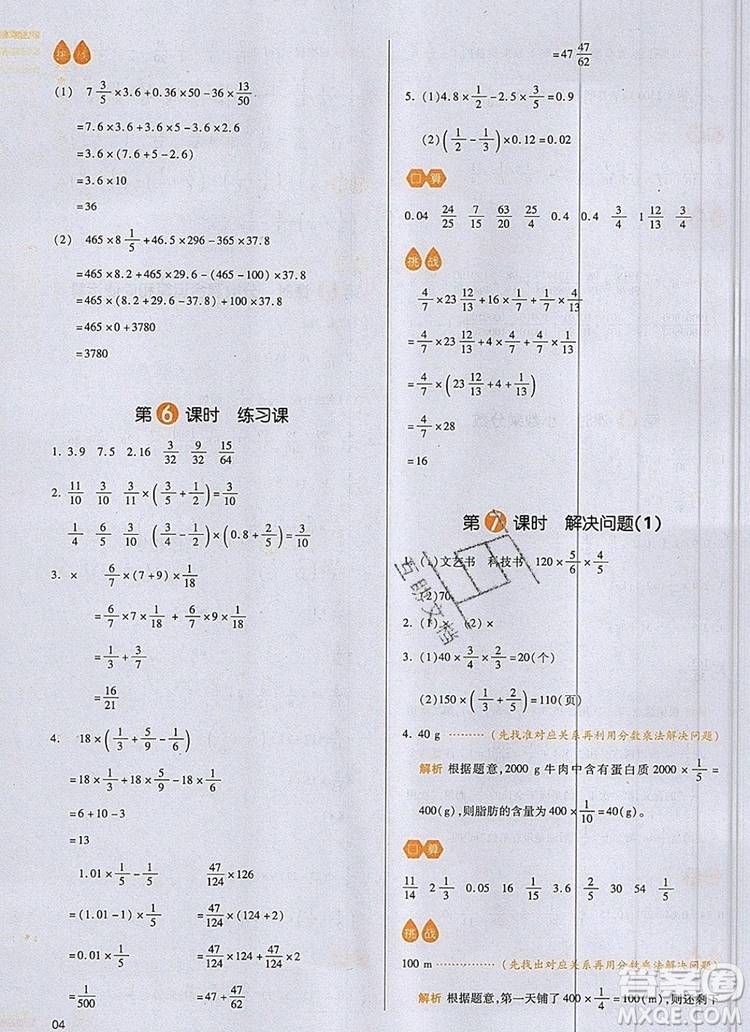 挑 战
(1) 7 3/5 ×3.6+0.36×50-36× 13/50
=7.6×3.6+3.6×5-3.6×2.6
=3.6×(7.6+5-2.6)
=3.6×10
=36
(2) 465×8 1/5 +46.5×296-365×37.8
=465×8.2+465×29.6-365×37.8
=465×(8.2+29.6-37.8)+100×37.8
=465×0+3780
=3780
第 6 课时 练习课
1. 3.9 7.5 2.16 3/32 9/32 15/64
2. 11/10 3/10 3/10 3/10 ×(3/5 + 2/5)= 3/10
1/4 6/35 3/8 3/8 3/8 ×(0.8+ 2/5)= 9/20
3. × 6/7 × 1/18 ×(7+9)× 1/7
= 6/7 ×7× 1/18 + 6/7 ×9× 1/18
= 1/3 + 3/7
= 16/21
4. 18×(1/3 + 5/9 - 1/6)
=18× 1/3 +18× 5/9 -18× 1/6
=6+10-3
=13
1.01× 1/5 - 1/5 47/124 ×126
=(1.01-1)× 1/5 = 47/124 ×(124+2)
=0.01× 1/5 = 47/124 ×124+ 47/124 ×2
= 1/500 =47+ 47/62
04
=47 47/62
5. (1)4.8× 1/2 -2.5× 3/5 =0.9
(2)(1/2 - 1/3)×0.12=0.02
口 算
0.04 24/25 7/15 63/20 25/64 0 3/4 1 1/13 3/4
挑 战
4/7 ×23 12/13 +16× 1/7 + 4/7 × 1/13
= 4/7 ×23 12/13 + 4/7 ×4+ 4/7 × 1/13
= 4/7 ×(23 12/13 +4+ 1/13)
= 4/7 ×28
=16
第 7 课时 解决问题(1)
1. (1)文艺书 科技书 120× 5/6 × 4/5
(2)70
2. (1)× (2)×
3. (1)40× 3/4 × 2/3 =20(个)
(2)150×(1/3 + 2/5)=110(页)
4. 40 g ………(先找准对应关系再利用分数乘法解决问题)
解析 根据题意,2000 g牛肉中含有蛋白质2000× 1/5 =
400(g),则脂肪的含量为400× 1/10 =40(g)。
口 算
11/14 2 1/3 0.05 16 3/4 2/5 30 54 1/15
挑 战
100 m ………(先找出对应关系再用分数乘法解决问题)
解析 根据题意,第一天铺了400× 1/4 =100(m),则还剩下
互助文档
答案圈
MXQE.COM